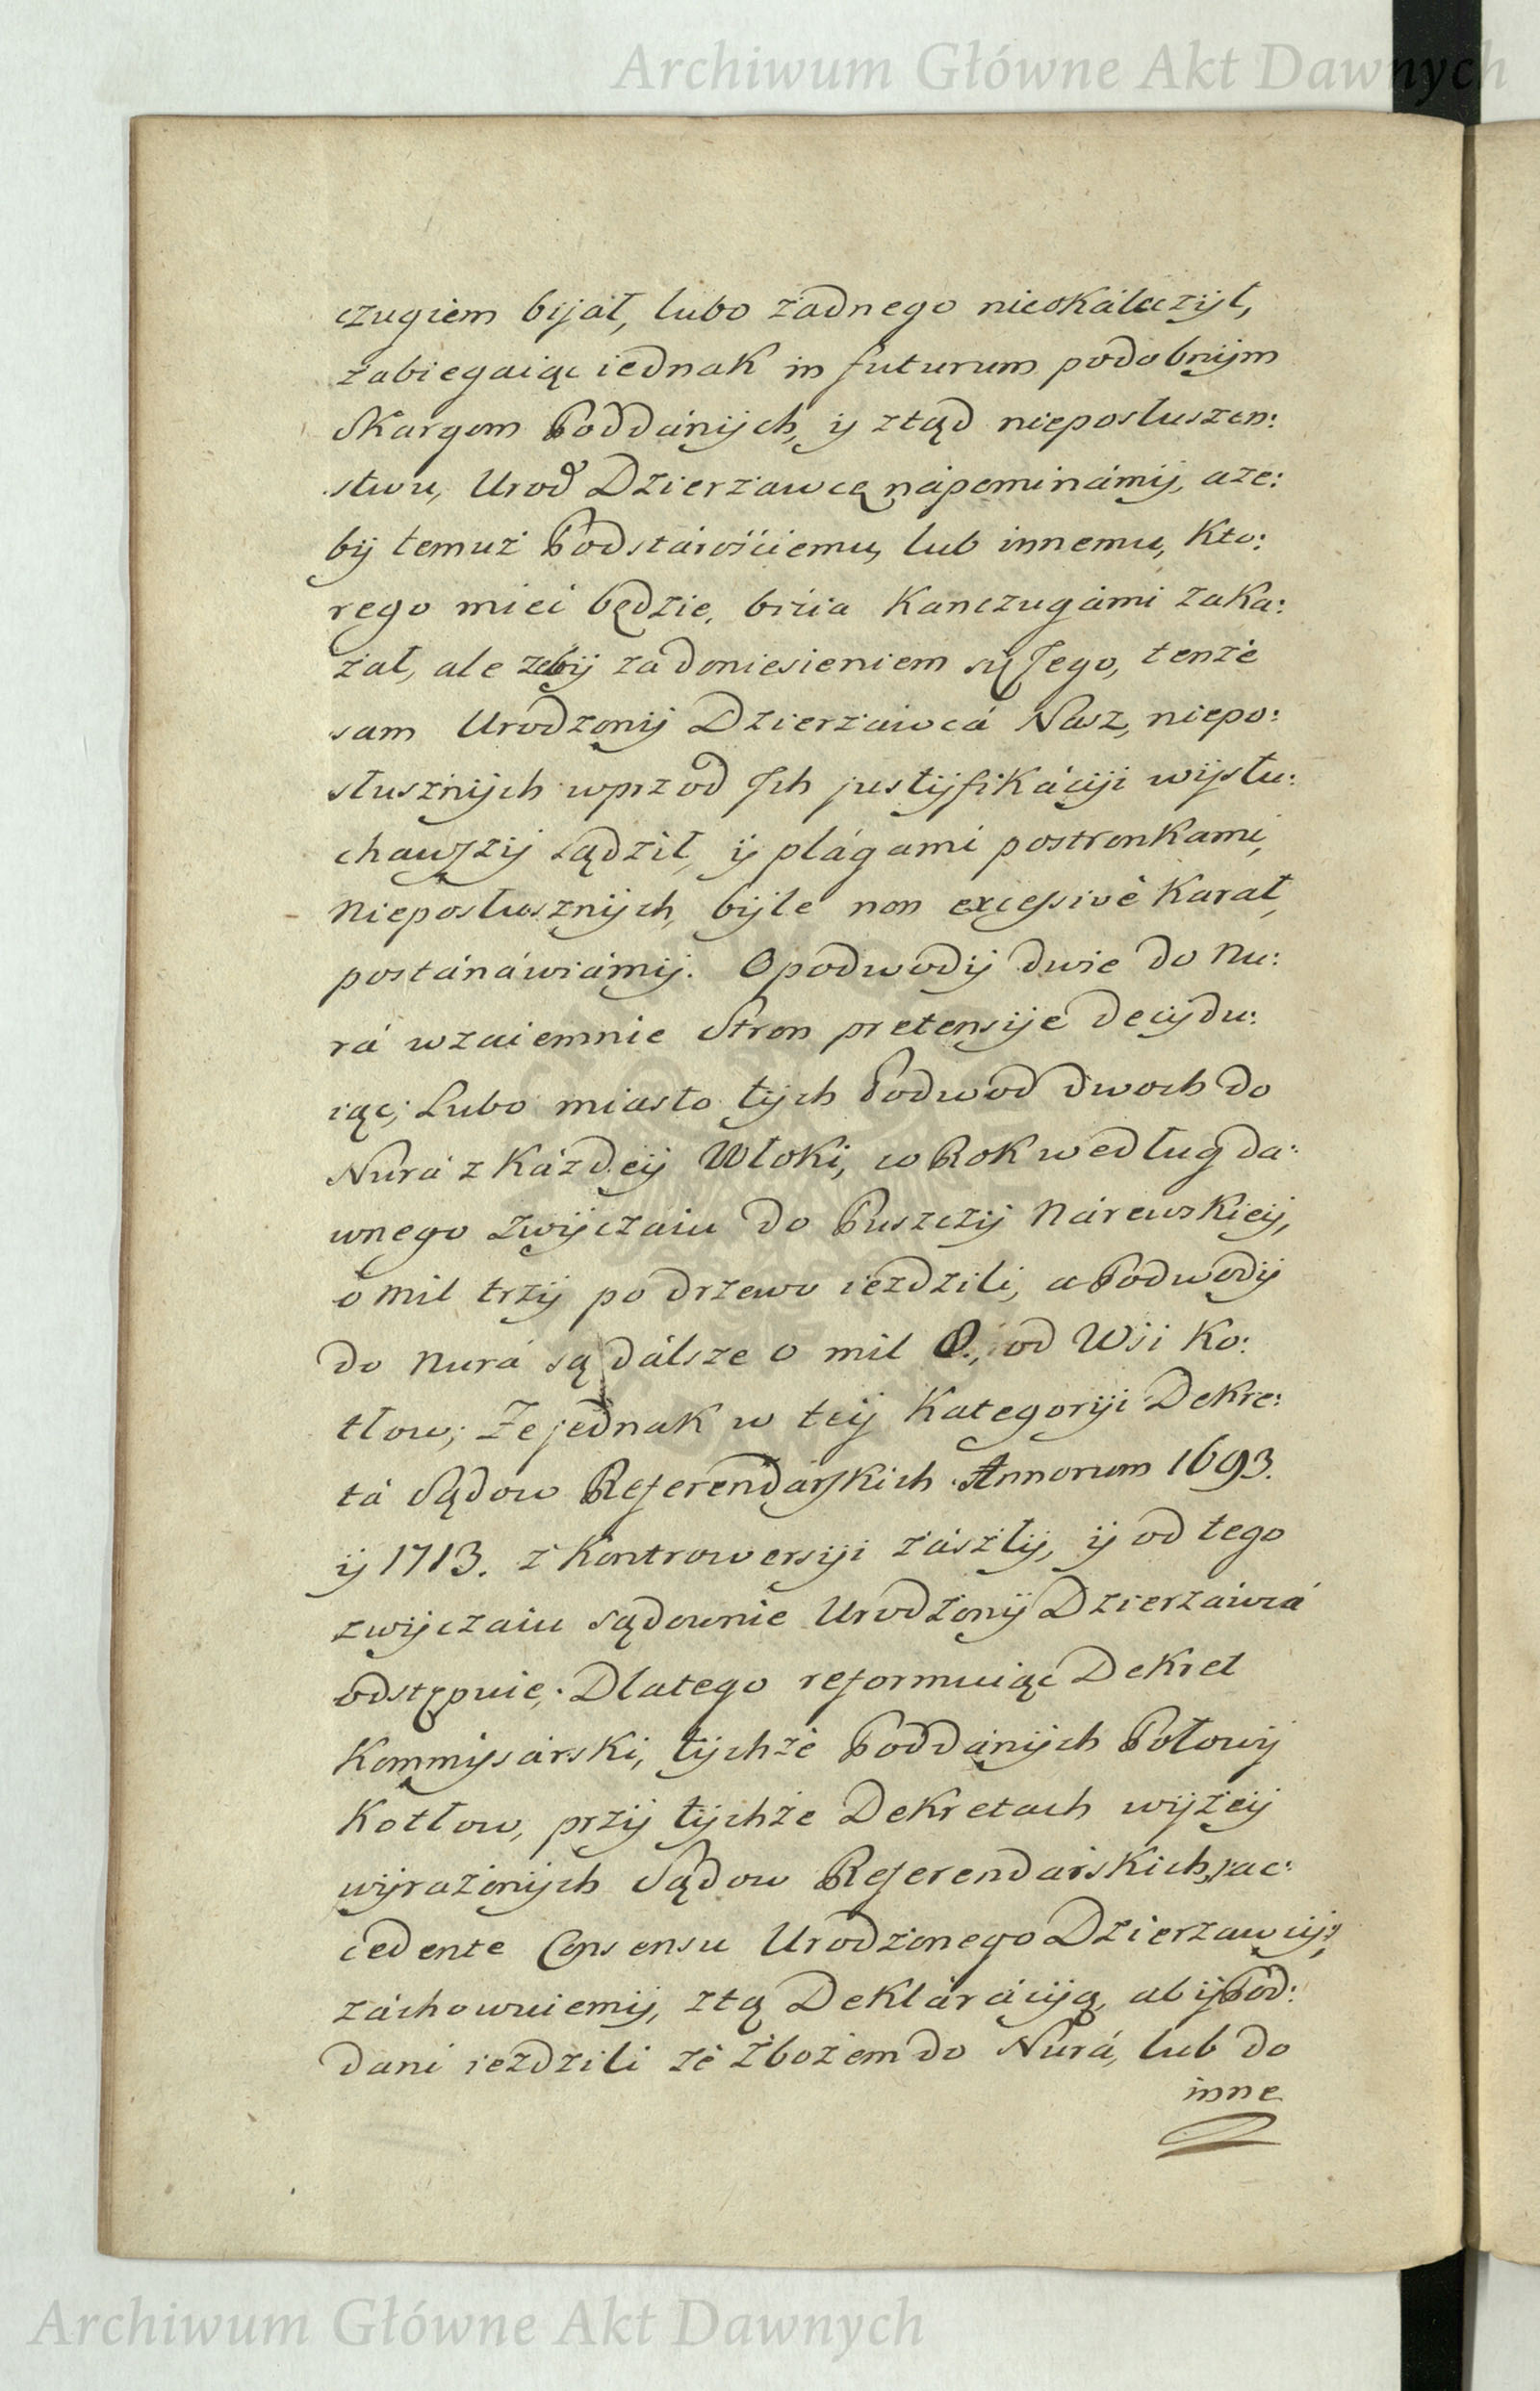 Archiwum Główne Akt Dawnych
czugiem bijał, lubo żadnego nieokáleczył,
zabiegaiąc iednak in futurum podobnijm
Skargom Poddánijch, ij ztąd nieposłuszen:
stwu, Urod Dzierzawcę nápominámij, aże:
bij temuż Podstárościemu, lub innemu, Kto:
rego mieć będzie, bicia Kanczugámi zaka:
zał, ale żebij za doniesieniem się Jego, tenże
sam Urodzonij Dzierzawcá Nasz, niepo:
słusznijch wprzod Jch justijfikácyji wijsłu:
chawszij sądził, ij plágami postronkami,
nieposłusznijch, bijle non excessivè Karał,
postánáwiámij. O podwodij dwie do Nu:
rá wzaiemnie Stron pretensije decijdu:
iąc; Lubo miasto tijch Podwod dwoch do
Nurá z Káżdeij Włoki, w Rok według da:
wnego zwijczaiu do Puszczij Nárewskieij,
o mil trzij po drzewo ieździli, a Podwodij
do Nurá są dálsze o mil 8., od Wsi Ko:
tłow; Że jednak w teij Kategoriji Dekre:
tá Sądow Referendarskich Annorum 1693.
ij 1713. z Kontrowersiji zászłij, ij od tego
zwijczaiu sądownie Urodzonij Dzierzáwcá
odstępuie, Dlatego reformuiąc Dekret
Kommijsárski, tijchże Poddánijch Połowij
Kotłow, przij tijchże Dekretach wijżeij
wijrażonijch Sądow Referendarskich, ac:
cedente Consensu Urodzonego Dzierzawcij,
záchowuiemij, z tą Deklárácijją, abij Pod:
dani ieździli ze Zbożem do Nurá, lub do
inne
Archiwum Główne Akt Dawnych